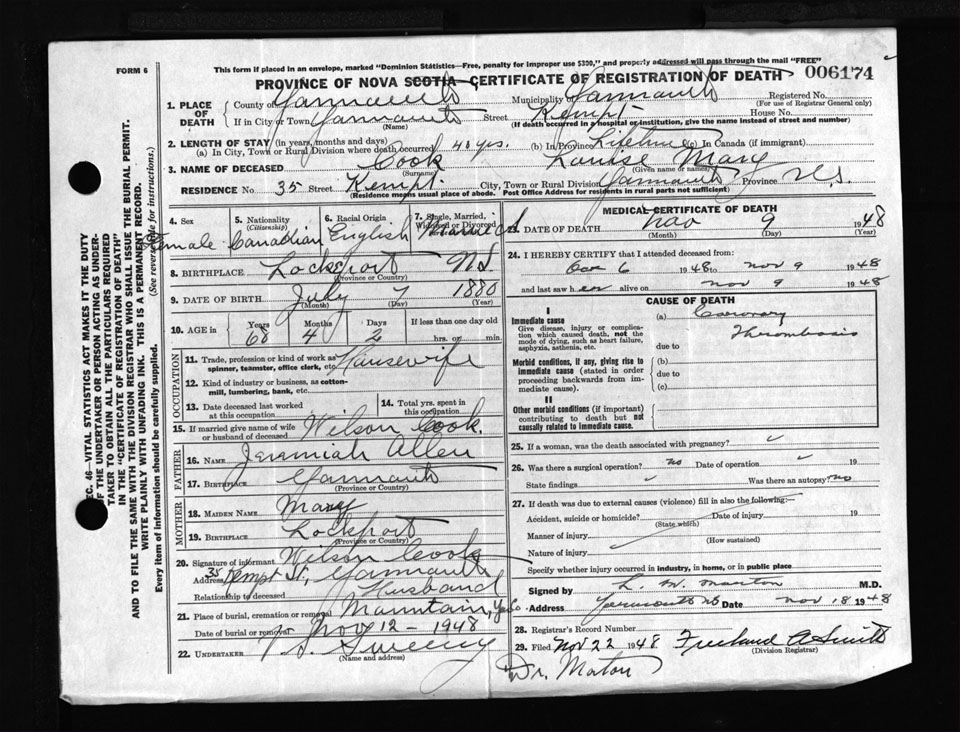 FORM 6
This form if placed in an envelope, marked "Dominion Statistics—Free, penalty for improper use $300," and properly addressed will pass through the mail "FREE"
PROVINCE OF NOVA SCOTIA—CERTIFICATE OF REGISTRATION OF DEATH 006174
1. PLACE OF DEATH County of Yarmouth Municipality of Yarmouth Registered No.
(For use of Registrar General only)
If in City or Town Yarmouth Street Kempt House No.
(Name) (If death occurred in a hospital or institution, give the name instead of street and number)
2. LENGTH OF STAY (in years, months and days)
(a) In City, Town or Rural Division where death occurred 40 yrs. (b) In Province Lifetime (c) In Canada (if immigrant)
3. NAME OF DECEASED Cook Louise Mary
(Surname) (Given name or names)
RESIDENCE No. 35 Street Kempt City, Town or Rural Division Yarmouth Province N.S.
(Residence means usual place of abode. Post Office Address not sufficient for residents in rural parts)
4. Sex 5. Nationality (Citizenship) 6. Racial Origin 7. Single, Married, Widowed or Divorced
Female Canadian English Married
8. BIRTHPLACE Lockeport N.S.
(Province or Country)
9. DATE OF BIRTH July 7 1880
(Month) (Day) (Year)
10. AGE in Years Months Days If less than one day old
68 4 2 hrs. or min.
OCCUPATION
11. Trade, profession or kind of work as spinner, teamster, office clerk, etc. Housewife
12. Kind of industry or business, as cotton-mill, lumbering, bank, etc.
13. Date deceased last worked at this occupation 14. Total yrs. spent in this occupation
15. If married give name of wife or husband of deceased Wilson Cook.
FATHER
16. NAME Jeremiah Allen
17. BIRTHPLACE Yarmouth
(Province or Country)
MOTHER
18. MAIDEN NAME Mary
19. BIRTHPLACE Lockport
(Province or Country)
20. Signature of informant Wilson Cook
Address 35 Kempt St., Yarmouth
Relationship to deceased Husband
21. Place of burial, cremation or removal Mountain,
Date of burial or removal Nov 12-1948
22. UNDERTAKER Sweeny
(Name and address)
MEDICAL CERTIFICATE OF DEATH
23. DATE OF DEATH Nov 9 1948
(Month) (Day) (Year)
24. I HEREBY CERTIFY that I attended deceased from:
6 1948 to Nov 9 1948
and last saw her alive on Nov 9 1948
CAUSE OF DEATH
I
Immediate cause (a) Coronary
Give disease, injury or complication which caused death, not the mode of dying, such as heart failure, asphyxia, asthenia, etc. Thrombosis
due to
Morbid conditions, if any, giving rise to immediate cause (stated in order proceeding backwards from immediate cause). (b)
due to
(c)
II
Other morbid conditions (if important) contributing to death but not causally related to immediate cause.
25. If a woman, was the death associated with pregnancy?
26. Was there a surgical operation? no Date of operation 19
State findings Was there an autopsy no
27. If death was due to external causes (violence) fill in also the following:
Accident, suicide or homicide? Date of injury 19
(State which)
Manner of injury
(How sustained)
Nature of injury
Specify whether injury occurred in industry, in home, or in public place
Signed by M.D.
Address Yarmouth NS Date Nov 18 1948
28. Registrar's Record Number
29. Filed Nov 22 1948 Smith
(Division Registrar)
Dr. Maton
SEC. 46—VITAL STATISTICS ACT MAKES IT THE DUTY
OF THE UNDERTAKER OR PERSON ACTING AS UNDERTAKER TO OBTAIN ALL THE PARTICULARS REQUIRED
IN THE "CERTIFICATE OF REGISTRATION OF DEATH"
AND TO FILE THE SAME WITH THE DIVISION REGISTRAR WHO SHALL ISSUE THE BURIAL PERMIT.
WRITE PLAINLY WITH UNFADING INK. THIS IS A PERMANENT RECORD.
Every item of information should be carefully supplied. (See reverse side for instructions.)